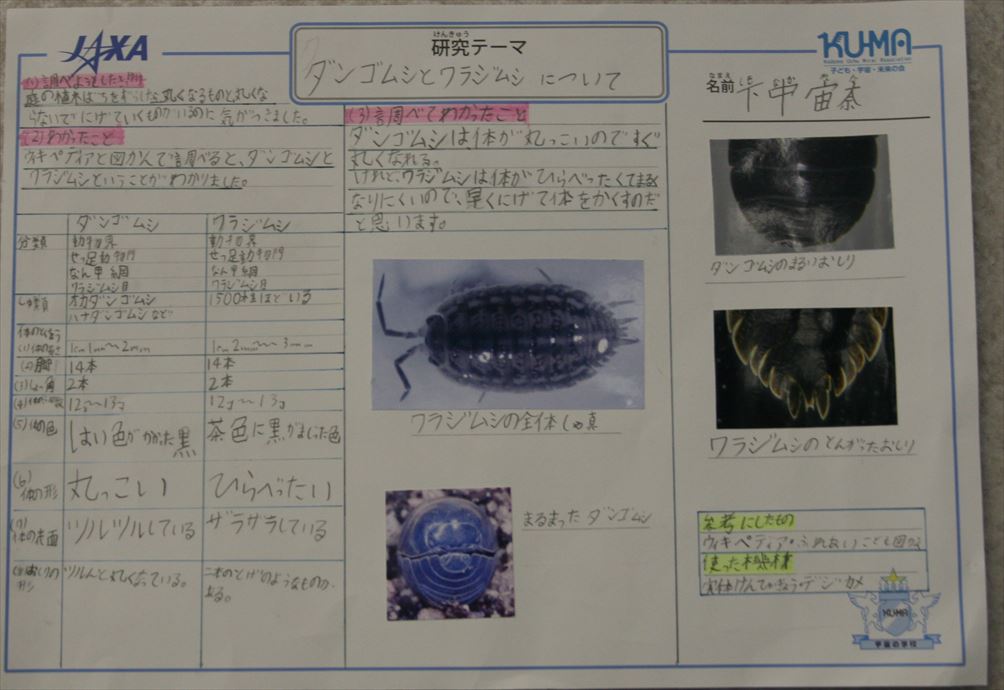 JAXA
けんきゅう
研究テーマ
ダンゴムシとワラジムシ について
KU-MA
子ども・宇宙・未来の会
なまえ
名前
庭の植木ばちをずらしたら丸くなるものと丸くな
らないでにげていくものがいるのに 気がつきました。
(2)わかったこと
ウィキペディアと図かんで調べると、ダンゴムシと
ワラジムシということがわかりました。
(3)調べてわかったこと
ダンゴムシは体が丸っこいのですぐ
丸くなれる。
けれど、ワラジムシは体がひらべったくてまるく
なりにくいので、早くにげて体をかくすのだ
と思います。
ダンゴムシ ワラジムシ
分類 動物界 動物界
せっ足動物門 せっ足動物門
なん甲綱 なん甲綱
ワラジムシ目 ワラジムシ目
しゅ類 オカダンゴムシ 1500種ほどいる
ハナダンゴムシなど
(1)体の長さ 1cm1mm〜2mm 1cm2mm〜3mm
(2)脚 14本 14本
(3)しょっ角 2本 2本
(4) 12g〜13g 12g〜13g
(5)体の色 はい色がかった黒 茶色に黒がまじった色
(6)体の形 丸っこい ひらべったい
(7)体の表面 ツルツルしている ザラザラしている
おしりの形 ツルんと丸くなっている。 二本のとげのようなものがある。
ワラジムシの全体しゃ真
まるまったダンゴムシ
ダンゴムシのまるいおしり
ワラジムシのとんがったおしり
参考にしたもの
ウィキペディア・ふれあいこども図かん
使った機材
実体けんびきょう・デジカメ
KU-MA
宇宙の学校